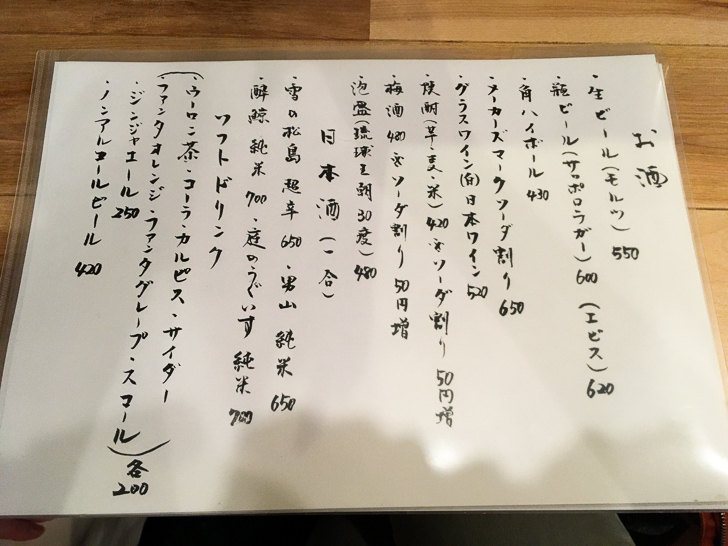 お酒
・生ビール(モルツ) 550
・瓶ビール(サッポロラガー) 600 (エビス) 620
・角ハイボール 430
・メーカーズマークソーダ割り 650
・グラスワイン(白)日本ワイン 520
・焼酎(芋・麦・米) 420 ※ソーダ割り 50円増
・梅酒 480 ※ソーダ割り 50円増
・泡盛(琉球王朝30度) 480
日本酒(一合)
・雪の松島 超辛 650 ・男山 純米 650
・酔鯨 純米 700 ・庭のうぐいす 純米 700
ソフトドリンク
(・ウーロン茶・コーラ・カルピス・サイダー
・ファンタオレンジ・ファンタグレープ・スコール) 各200
・ジンジャエール 250
・ノンアルコールビール 420